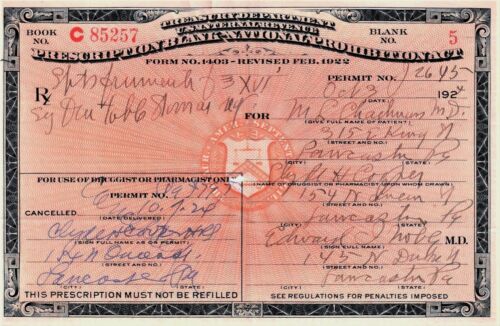 TREASURY DEPARTMENT
U.S. INTERNAL REVENUE
BOOK NO. C 85257
BLANK NO. 5
PRESCRIPTION BLANK-NATIONAL PROHIBITION ACT
FORM NO. 1403 - REVISED FEB. 1922
PERMIT NO. 12645
Rx
Spts frumenti
Oct 3 1924
(DATE)
M. D.
(GIVE FULL NAME OF PATIENT)
315 King
(STREET AND NO.)
Lancaster Pa
(CITY) (STATE)
FOR USE OF DRUGGIST OR PHARMACIST ONLY
Clyde H Cooper
(NAME OF DRUGGIST OR PHARMACIST UPON WHOM DRAWN)
PERMIT NO.
154 Queen
(STREET AND NO.)
10-3-24
CANCELLED
(DATE DELIVERED)
Lancaster Pa
(CITY) (STATE)
Clyde H Cooper
(SIGN FULL NAME AS ON PERMIT)
Edward Hobbs M.D.
(SIGN FULL NAME)
154 N Queen St
(STREET AND NO.)
145 N Duke
(STREET AND NO.)
Lancaster Pa
(CITY) (STATE)
Lancaster Pa
(CITY) (STATE)
THIS PRESCRIPTION MUST NOT BE REFILLED
SEE REGULATIONS FOR PENALTIES IMPOSED